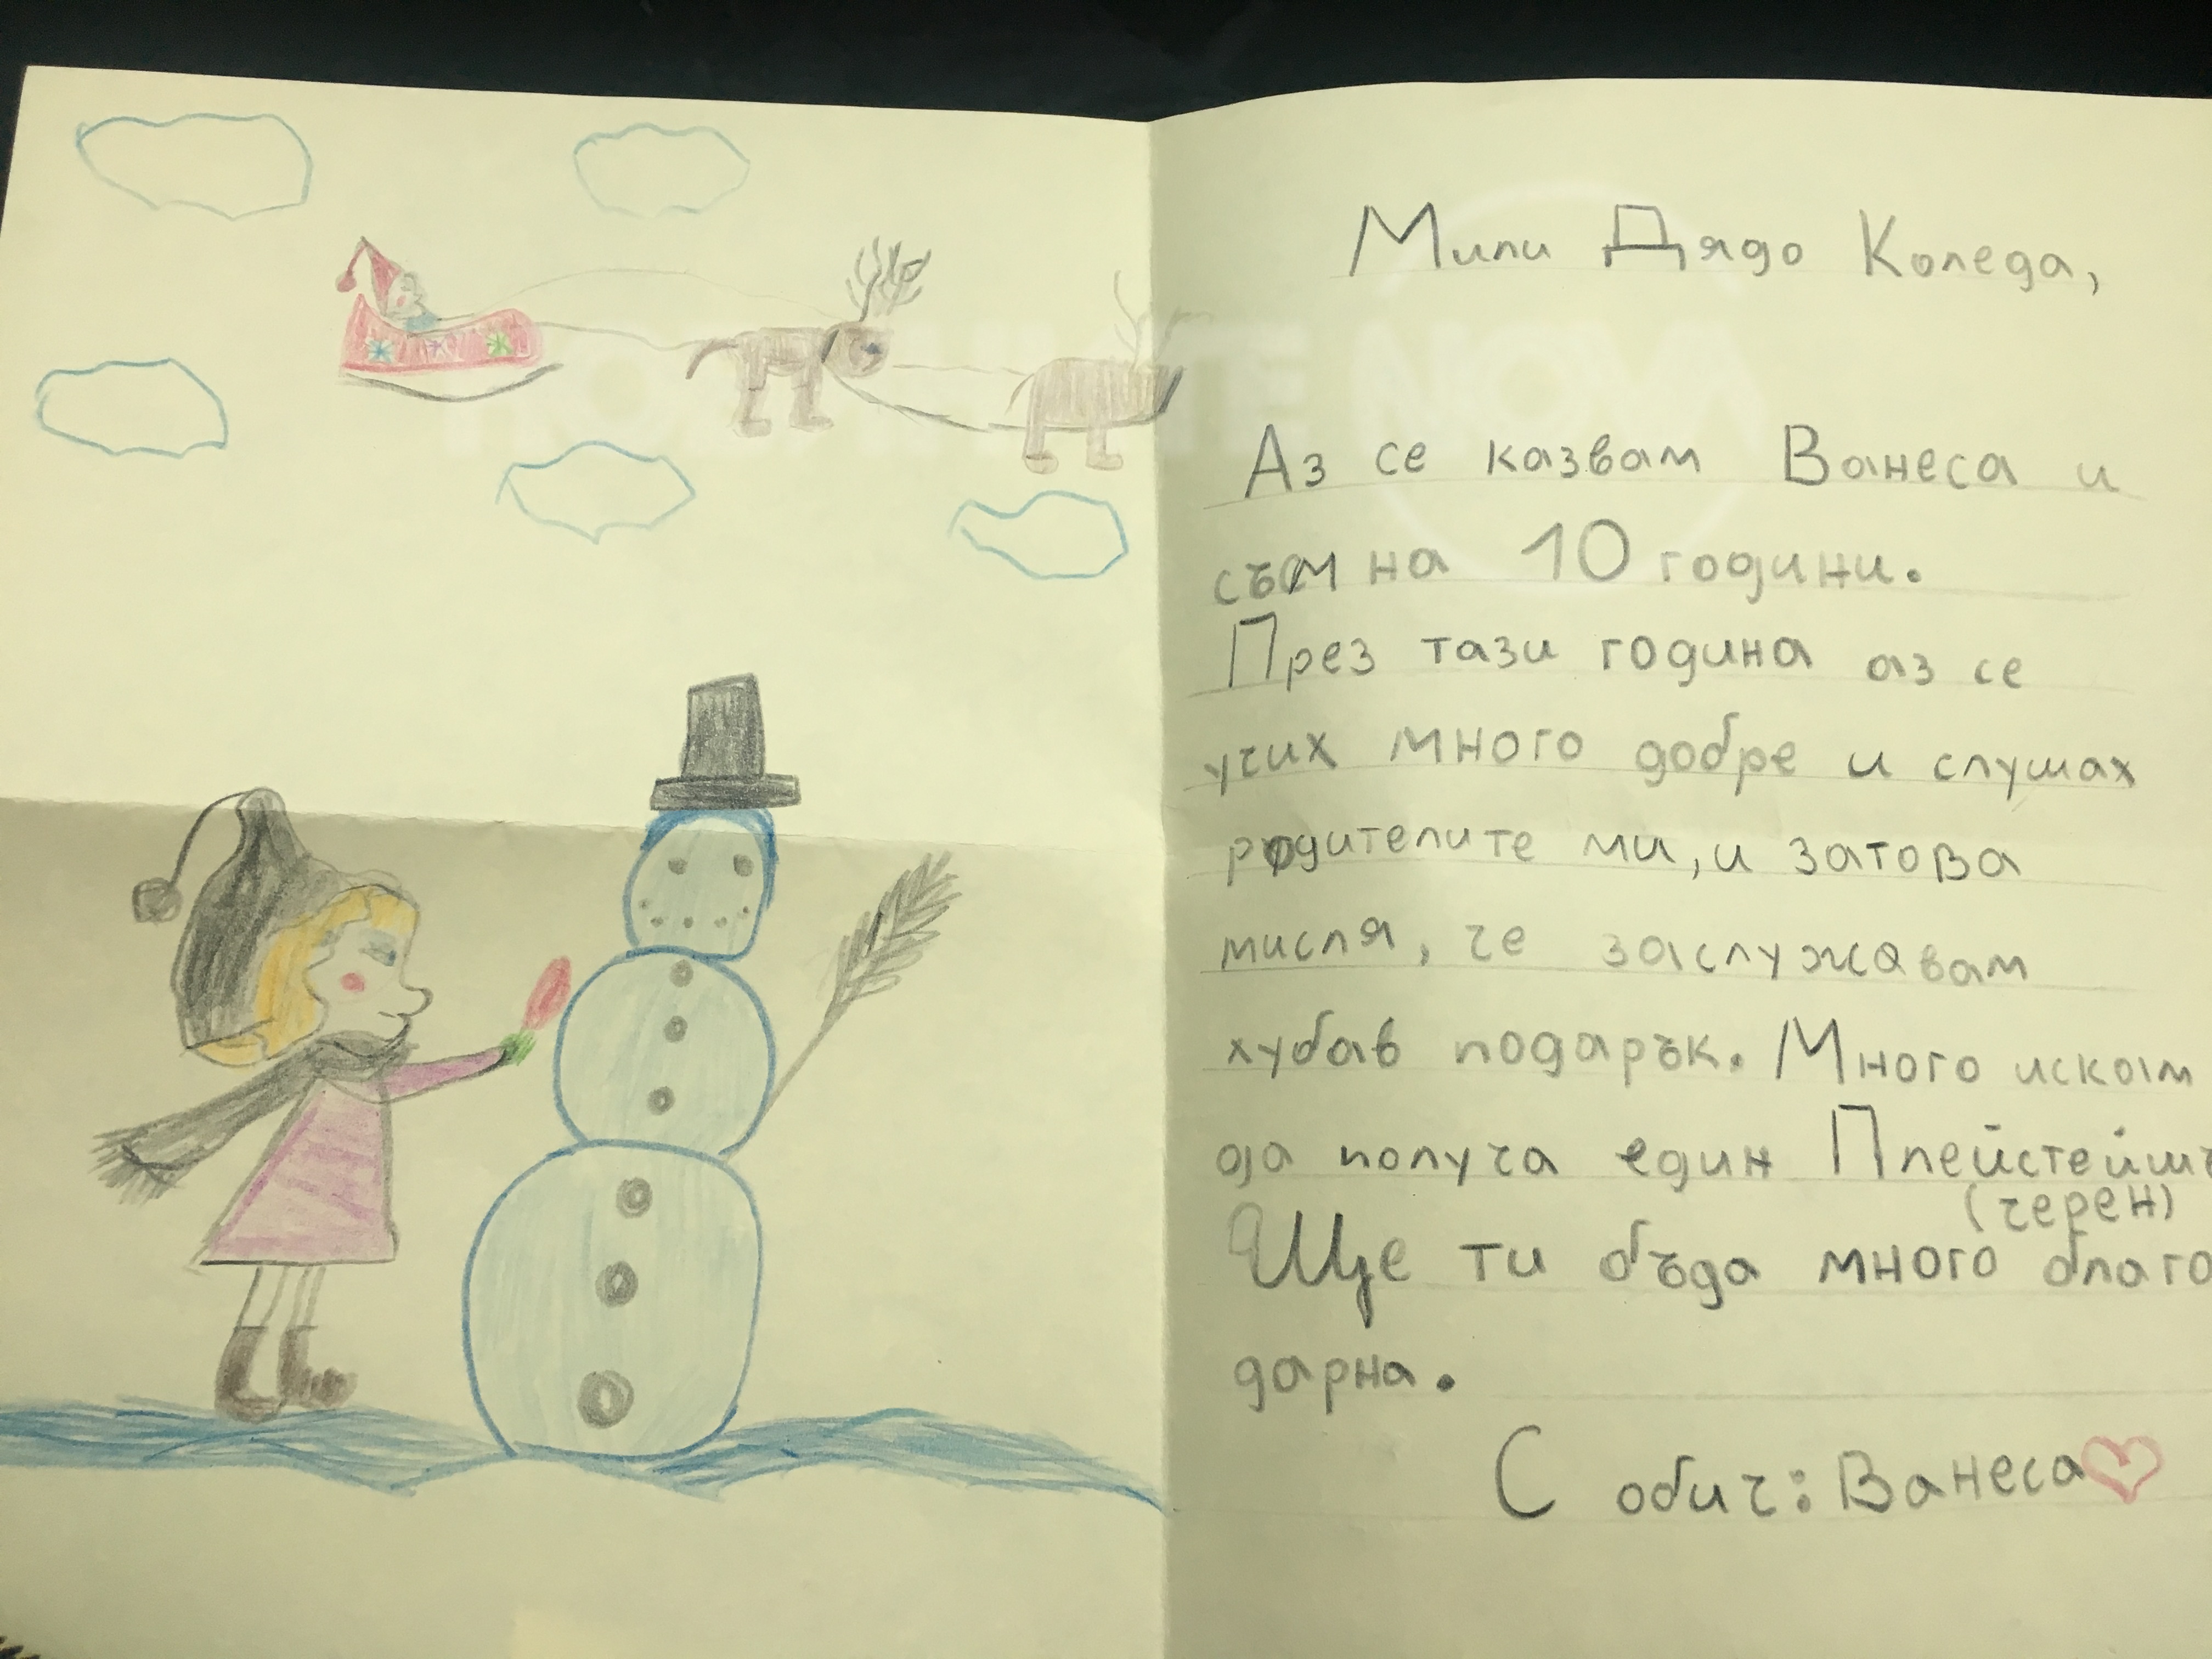 Мили Дядо Коледа,
Аз се казвам Ванеса и
съм на 10 години.
През тази година аз се
учих много добре и слушах
родителите ми, и затова
мисля, че заслужавам
хубав подарък. Много искам
да получа един Плейстейшъ
(черен)
Ще ти бъда много благо
дарна.
С обич: Ванеса